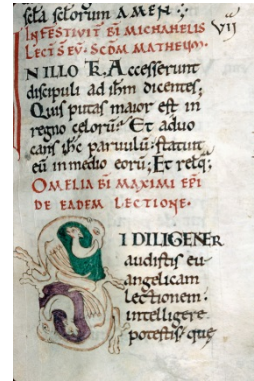 scła scłorum AMEN :
IN FESTIVIT BI MICHAHELIS VII
LECTS EV. SCDM MATHEUM.
N ILLO T̄R. Accesserunt
discipuli ad ihm dicentes;
Quis putas maior est in
regno celorū? Et advo
cans ihc parvulū. statuit
eū in medio eorū; Et relq;
OMELIA BI MAXIMI EPI
DE EADEM LECTIONE.
I DILIGENTER
audistis eu
angelicam
lectionem.
intelligere
potestis. que